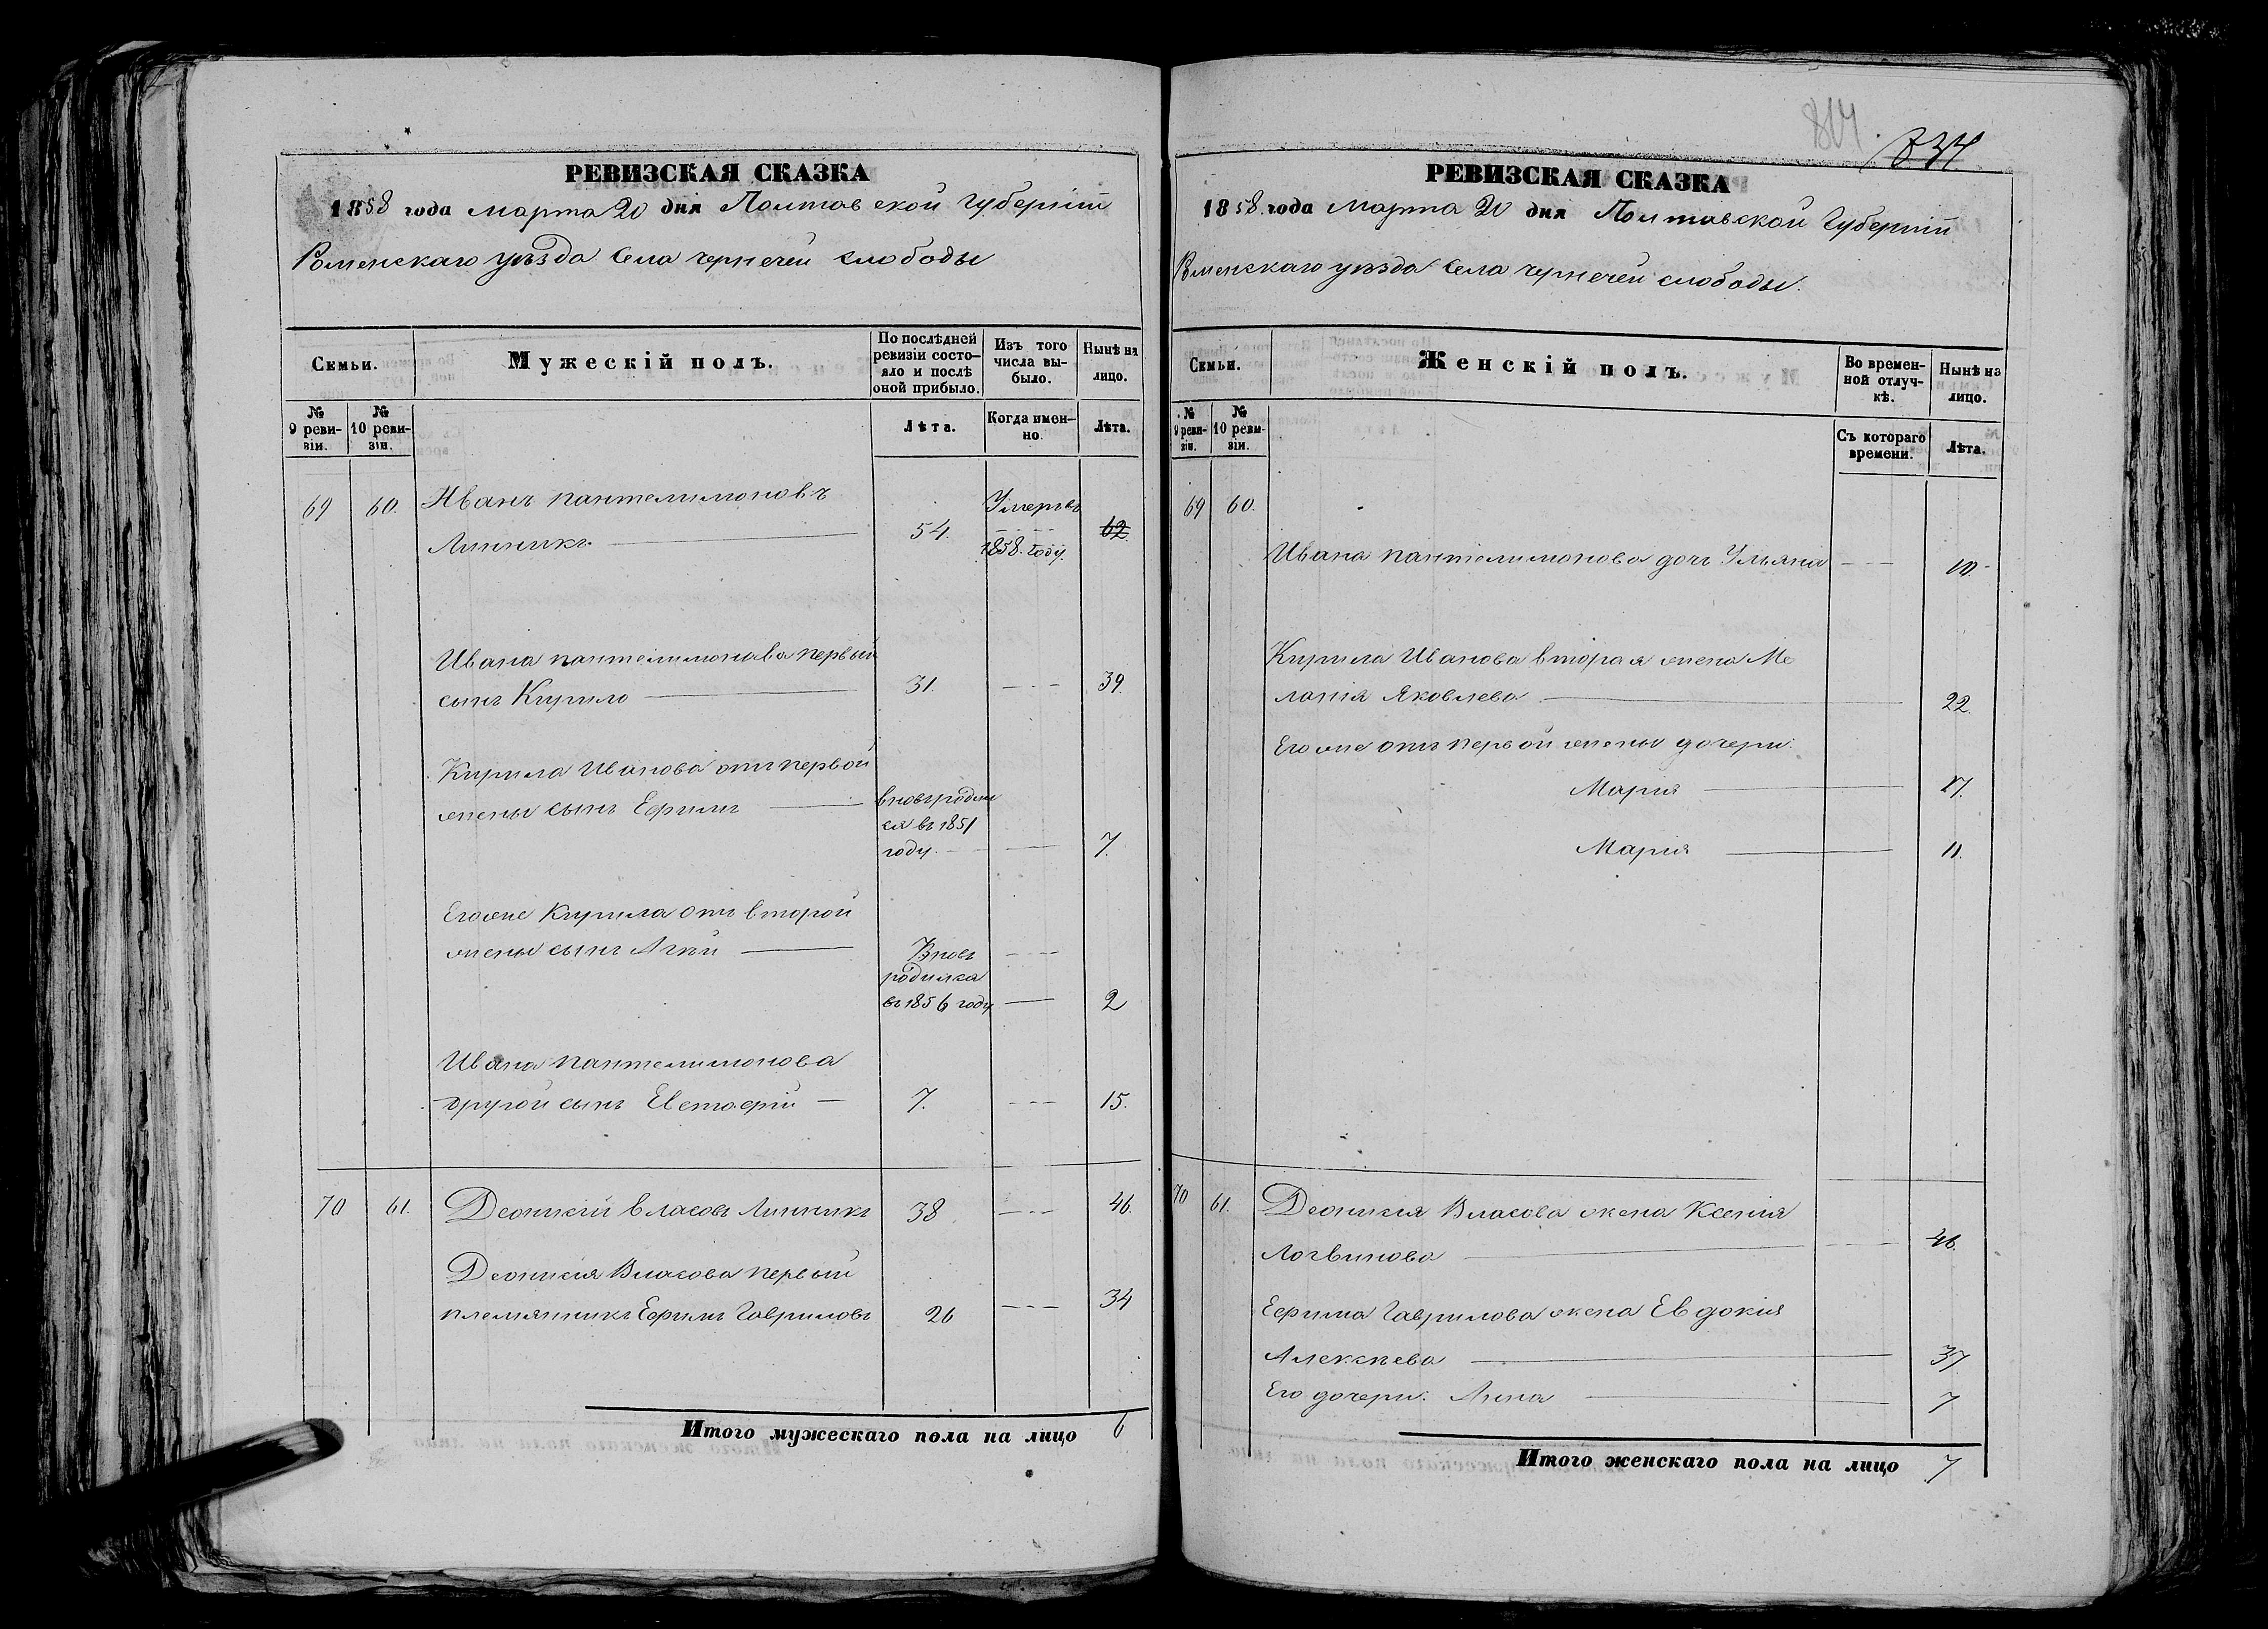 РЕВИЗСКАЯ СКАЗКА
1858 года Марта 20 дня Полтавской Губерніи
Роменскаго уѣзда Села чернечей слободы
Семьи.
Мужескій полъ.
По послѣдней ревизіи состо-
яло и послѣ оной прибыло.
Изъ того числа вы-
было.
Нынѣ на лицо.
№ 9 реви-
зіи.
№ 10 реви-
зіи.
Лѣта.
Когда имен-
но.
Лѣта.
69 60. Иванъ пантелимоновъ
Линникъ 54. Умеръ въ
1858. году. 62.
Ивана пантелимонова первый
сынъ Кирило 31. 39.
Кирила Иванова отъ первой
жены сынъ Ефимъ вновь родил
ся въ 1851
году. 7.
Его же Кирила отъ второй
жены сынъ Вновь
родился
въ 1856 году 2
Ивана пантелимонова
другой сынъ Евстафій 7. 15.
70 61. Деонисій власовъ Линникъ 38 46.
Деонисія Власова первый
племянникъ Ефимъ Гавриловъ 26 34
Итого мужескаго пола на лицо 6
814.
834.
РЕВИЗСКАЯ СКАЗКА
1858. года Марта 20 дня Полтавской Губерніи
Роменскаго уѣзда Села чернечей слободы.
Семьи.
Женскій полъ.
Во времен-
ной отлуч-
кѣ.
Нынѣ на лицо.
№ 9 реви-
зіи.
№ 10 реви-
зіи.
Съ котораго времени.
Лѣта.
69 60.
Ивана пантелимонова дочь Ульяна
Кирила Иванова вторая жена Ме
ланія Яковлева 22.
Его же отъ первой жены дочери:
Марія 17.
Марія 11.
70 61. Деонисія Власова жена Ксенія
Логвинова 46.
Ефима Гаврилова жена Евдокія
Алексѣева 37
Его дочери: Анна 7
Итого женскаго пола на лицо 7